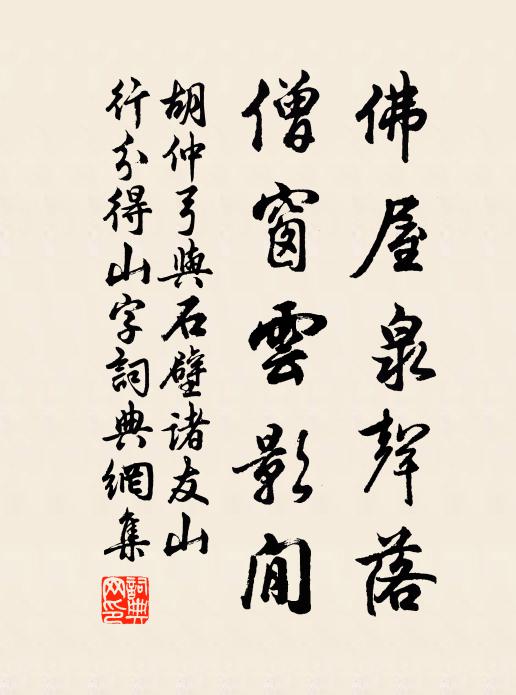 佛屋泉聲落
僧窗雲影閒
胡仲弓與石壁諸友山
行分得山字詞典網集
詞典網印